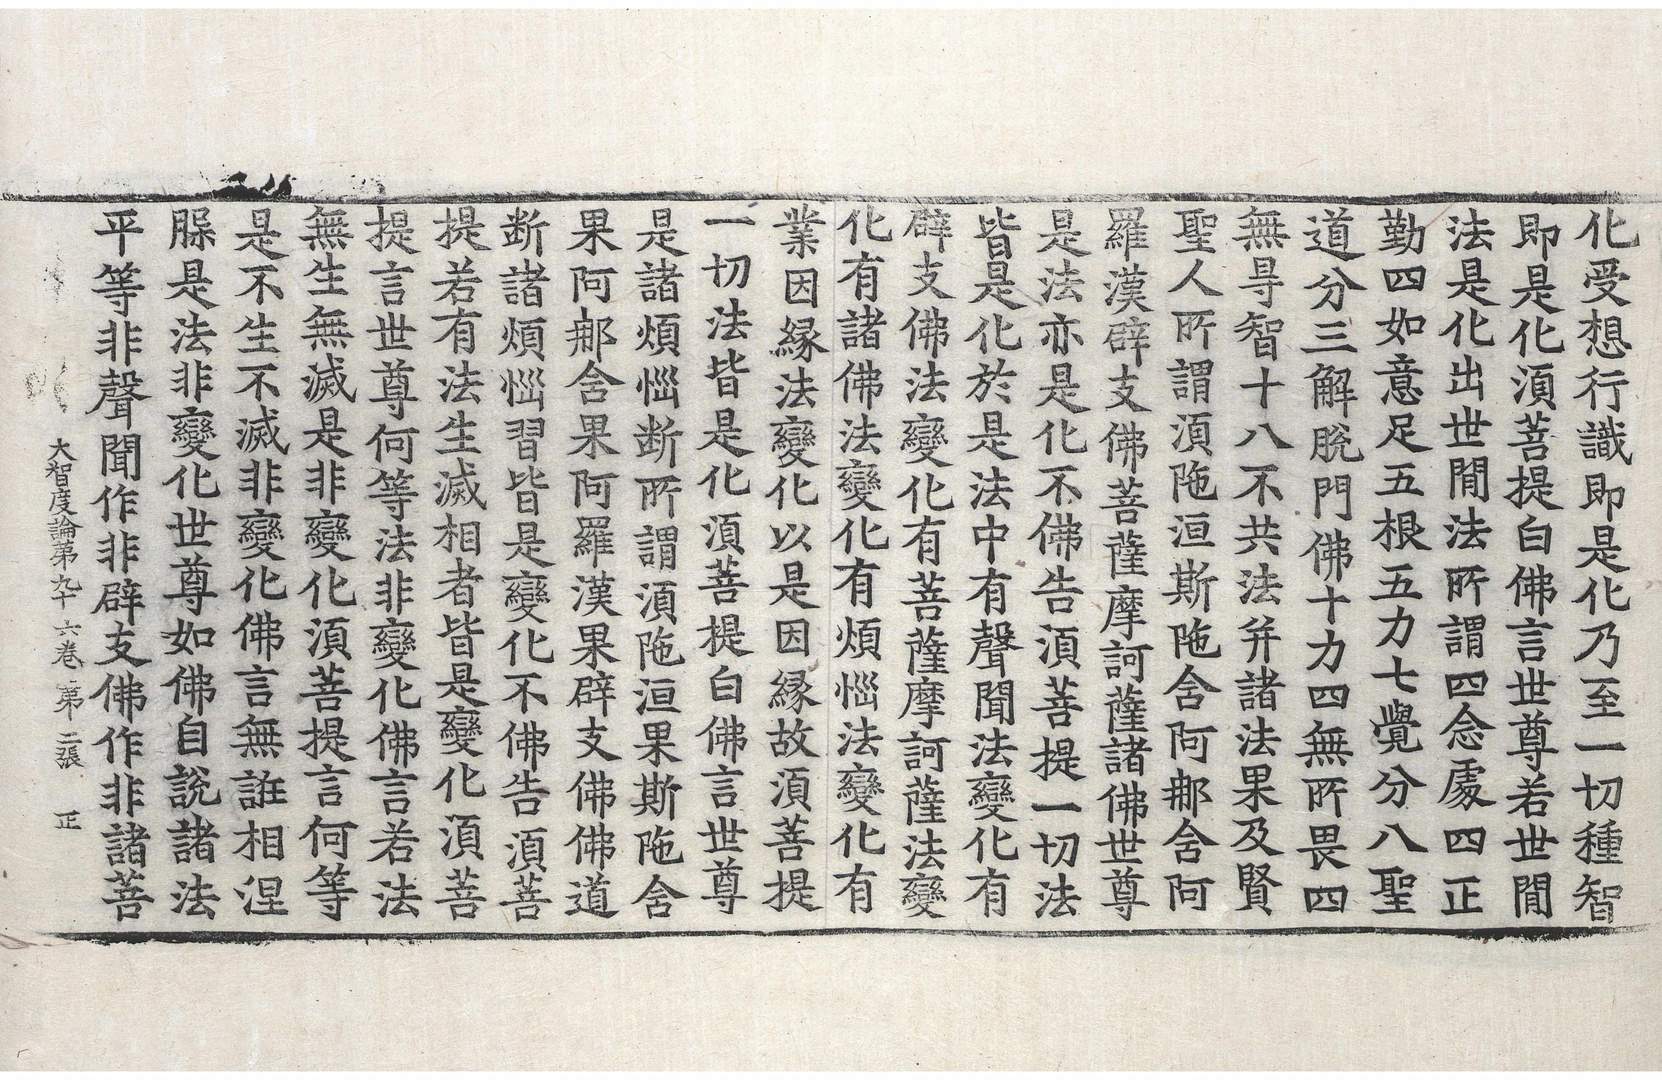 化受想行識即是化乃至一切種智
即是化湏菩提白佛言世尊若世閒
法是化出世閒法所謂四念處四正
勤四如意足五根五力七覺分八聖
道分三解脫門佛十力四無所畏四
無㝵智十八不共法并諸法果及賢
聖人所謂湏陁洹斯陁舍阿那舍阿
羅漢辟支佛菩薩摩訶薩諸佛世尊
是法亦是化不佛告湏菩提一切法
皆是化於是法中有聲聞法變化有
辟支佛法變化有菩薩摩訶薩法變
化有諸佛法變化有煩惱法變化有
業因緣法變化以是因緣故湏菩提
一切法皆是化湏菩提白佛言世尊
是諸煩惱斷所謂湏陁洹果斯陁舍
果阿那舍果阿羅漢果辟支佛佛道
断諸煩惱習皆是變化不佛告湏菩
提若有法生滅相者皆是變化湏菩
提言世尊何等法非變化佛言若法
無生無滅是非變化湏菩提言何等
是不生不滅非變化佛言無誑相涅
槃是法非變化世尊如佛自說諸法
平等非聲聞作非辟支佛作非諸菩
大智度論第九十六卷 第二張 正